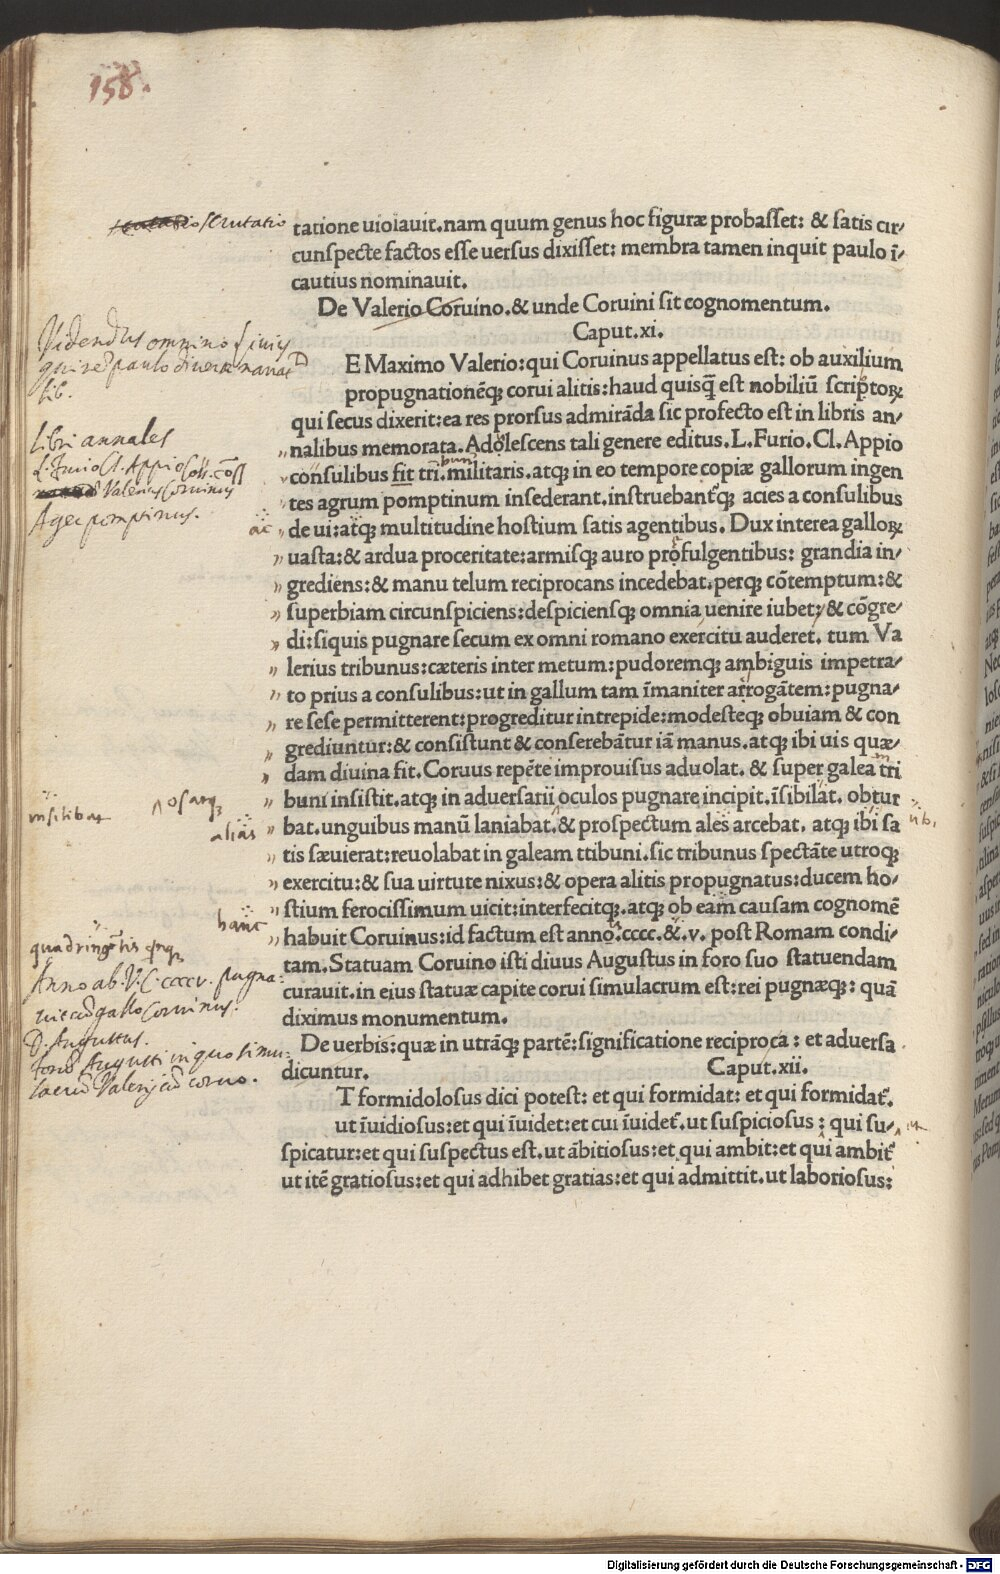 158.
scrutatio
tatione uiolauit.nam quum genus hoc figuræ probasset: & satis cir/
cunspecte factos esse uersus dixisset: membra tamen inquit paulo ī/
cautius nominauit.
De Valerio Coruino.& unde Coruini sit cognomentum.
Caput.xi.
Videndus omnino Livius
qui rem paulo diverse narrat
lib.
D
E Maximo Valerio:qui Coruinus appellatus est: ob auxilium
propugnationēqꝫ corui alitis:haud quisq̄ est nobiliū scriptoꝝ
qui secus dixerit:ea res prorsus admirāda sic profecto est in libris an/
Libri annales
nalibus memorata.Adolescens tali genere editus.L.Furio.Cl.Appio
L. Furio Cl. Appio Coss.
Valerius Corvinus
consulibus fit tri.militaris.atqꝫ in eo tempore copiæ gallorum ingen
bun
Ager pomptinus.
tes agrum pomptinum insederant.instruebant᷑qꝫ acies a consulibus
ac
de ui:atqꝫ multitudine hostium satis agentibus. Dux interea galloꝝ
uasta:& ardua proceritate:armisqꝫ auro profulgentibus: grandia in/
grediens:& manu telum reciprocans incedebat.perqꝫ cōtemptum:&
superbiam circunspiciens:despiciensqꝫ omnia uenire iubet:& cōgre/
di:siquis pugnare secum ex omni romano exercitu auderet. tum Va
lerius tribunus:cæteris inter metum:pudoremqꝫ ambiguis impetra/
to prius a consulibus:ut in gallum tam īmaniter arrogātem:pugna/
re sese permitterent:progreditur intrepide:modesteqꝫ obuiam & con
grediuntur:& consistunt & conserebātur iā manus.atqꝫ ibi uis quæ/
dam diuina fit. Coruus repēte improuisus aduolat. & super galea tri
m
insilibat
os atqꝫ
buni insistit.atqꝫ in aduersarii oculos pugnare incipit.īsibilat. obtur
alias
bat.unguibus manū laniabat.& prospectum ales arcebat. atqꝫ ibi sa
ubi
tis sæuierat:reuolabat in galeam ttibuni.sic tribunus spectāte utroqꝫ
exercitu:& sua uirtute nixus:& opera alitis propugnatus:ducem ho/
stium ferocissimum uicit:interfecitqꝫ.atqꝫ ob eam causam cognomē
hanc
quadringentis quinqꝫ
habuit Coruinus:id factum est anno.cccc.&.v. post Romam condi/
Anno ab.V.C.ccccv. pugna
tam.Statuam Coruino isti diuus Augustus in foro suo statuendam
vit cum gallo Corvinus.
curauit.in eius statuæ capite corui simulacrum est:rei pugnæqꝫ: quā
D. Augustus.
diximus monumentum.
Foru Augusti in quo simu
lacrum Valerij cum corvo.
De uerbis:quæ in utrāqꝫ partē:significatione reciproca : et aduersa
dicuntur. Caput.xii.
T formidolosus dici potest: et qui formidat: et qui formidat᷑.
ut īuidiosus:et qui īuidet:et cui īuidet᷑.ut suspiciosus : qui su/
spicatur:et qui suspectus est.ut ābitiosus:et qui ambit:et qui ambit᷑
ut itē gratiosus:et qui adhibet gratias:et qui admittit.ut laboriosus:
Digitalisierung gefördert durch die Deutsche Forschungsgemeinschaft - DFG